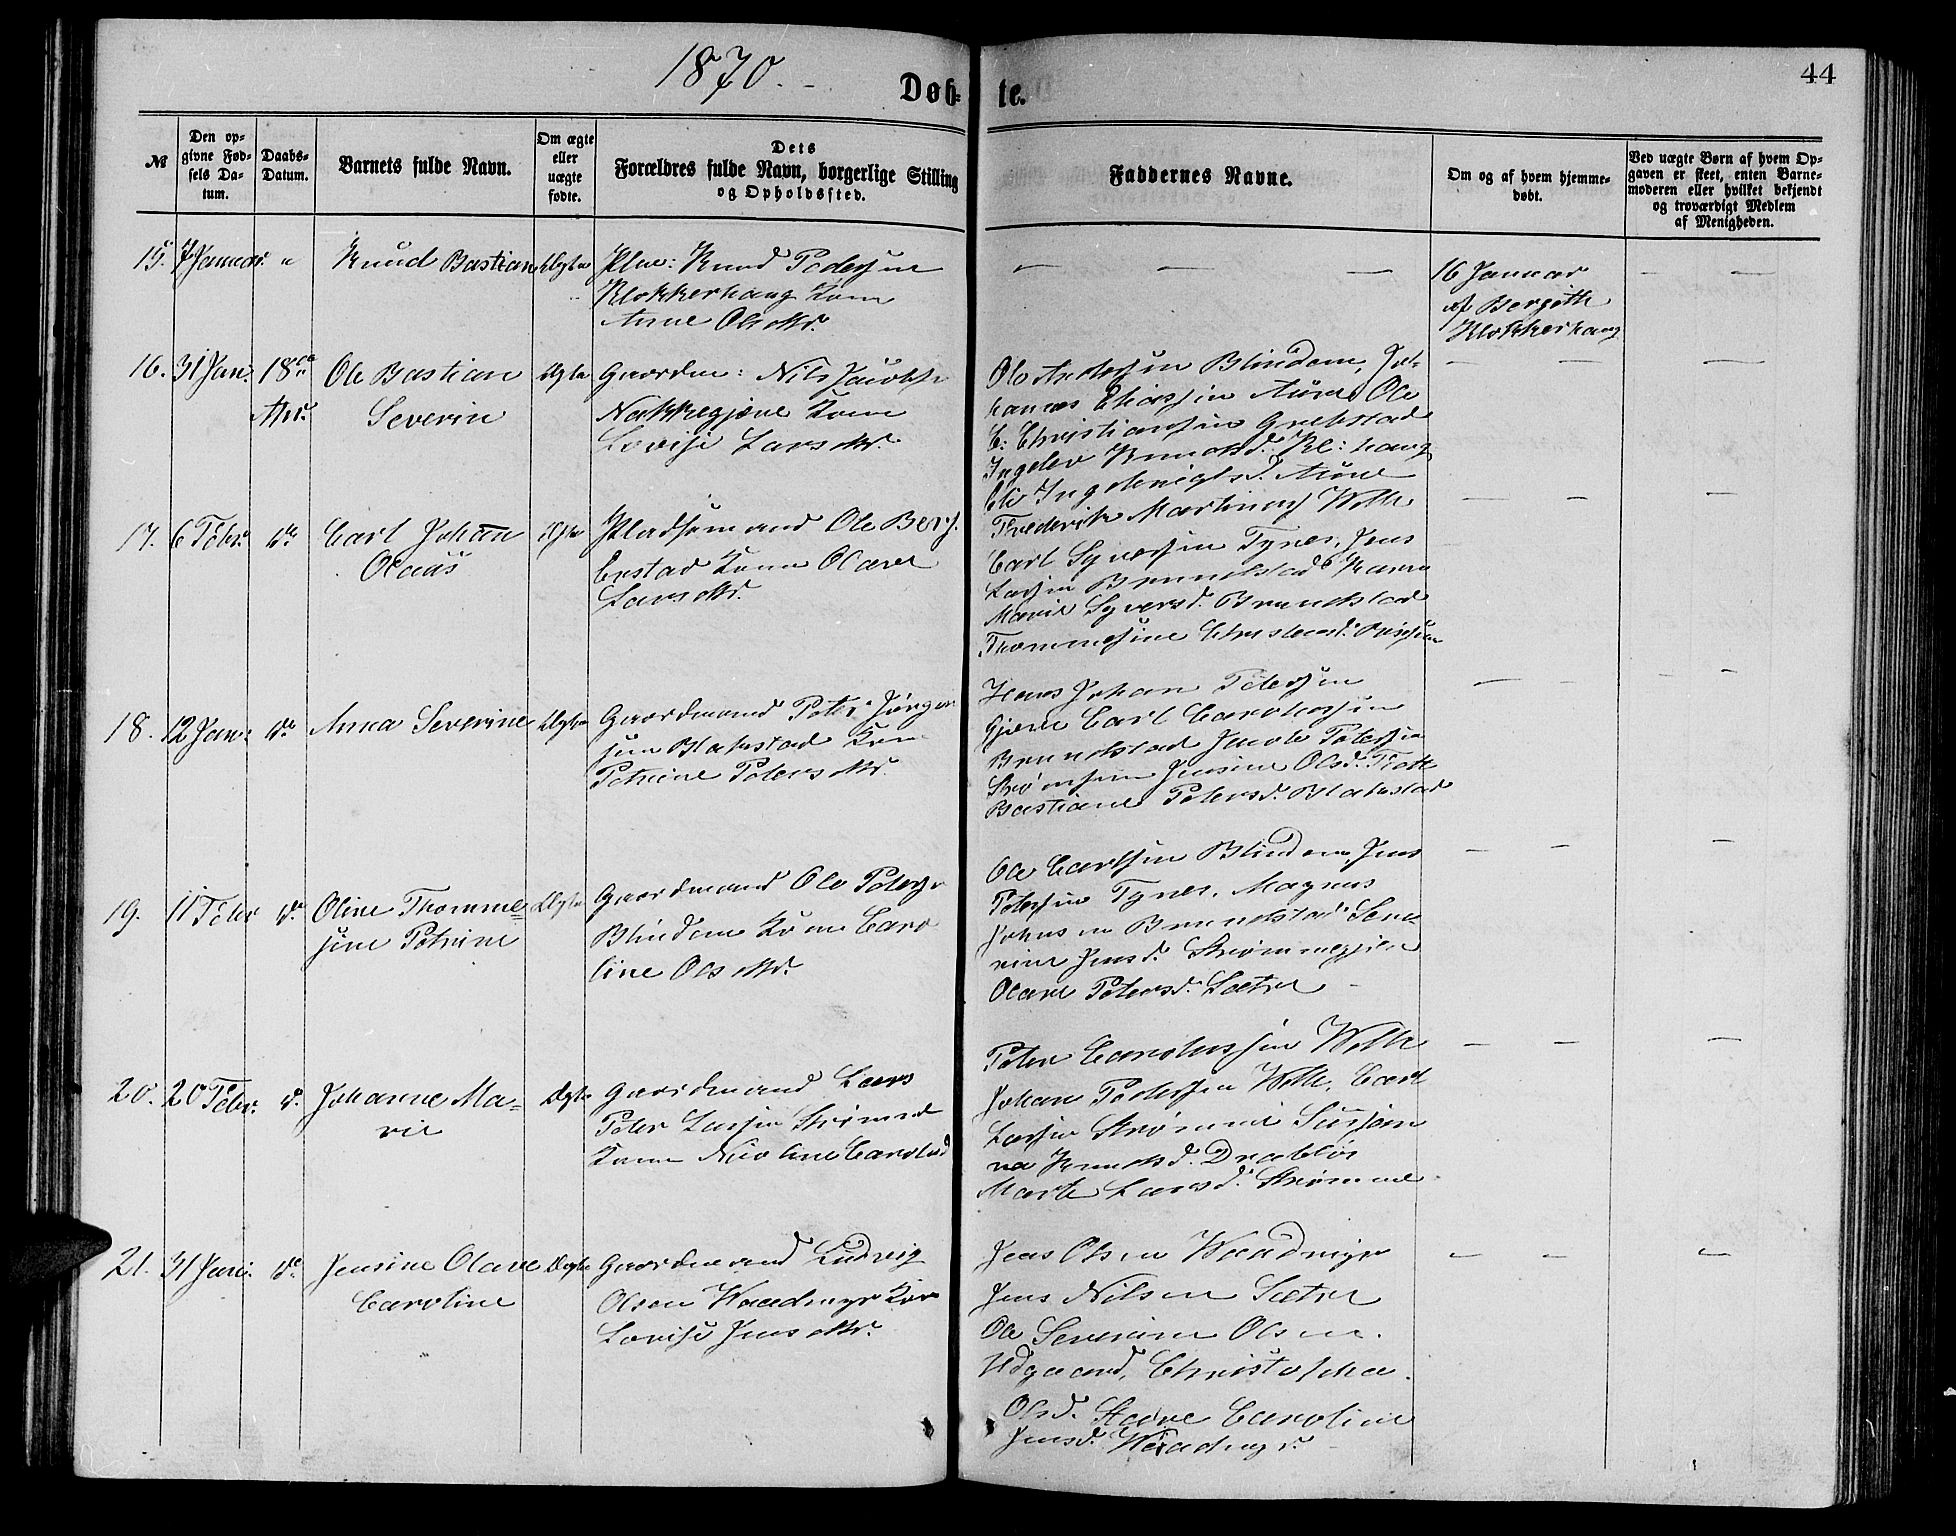 1870.
Døb-
te.
44
№
Den op-
givne Fød-
sels Da-
tum.
Daabs-
Datum.
Barnets fulde Navn.
Om ægte
eller
uægte
fødte.
Dets
Forældres fulde Navn, borgerlige Stilling
og Opholdssted.
Faddernes Navne.
Om og af hvem hjemme-
døbt.
Ved uægte Børn af hvem Op-
gaven er skeet, enten Barne-
moderen eller hvilket bekjendt
og troværdigt Medlem
af Menigheden.
15. 7 Januar. "
Knud Bastian
Ægte
Klokkerhaug Kone
Anne Olsdtr.
16 Januar
af Bergithe
Klokkerhaug
16. 31 Jan. 18de
Apr.
Ole Bastian
Severin
Ægte
Gaardm: Nils Jacobs.
Nakkegjære Kone
Lovise Larsdtr.
Ole Andersen Blindem, Jo-
hannes Eliassen Aure Ole
E. Christiansen Grebstad
Ingeb. Knudsd. Kl: haug
17. 6 Febr. do
Carl Johan
Olaüs
Ægte
Pladsemand Ole Berg.
Larsdtr.
Frederik Martinus Welle
Carl Syversen Tynes, Jens
Larsen Brunstad Karen
Marie Syversd. Brunstad
18. 12 Jan. do
Anna Severine
Ægte
Gaardmand Peter Jørgen
sen Blakstad Kone
Petrine Petersdtr.
Hans Johan Petersen
Gjære Carl Carolussen
Brunstad Jacob Petersen
Bastiane Petersd. Blakstad
19. 11 Febr do
Oline Thomme-
sine Petrine
Ægte
Gaardmand Ole Peters.
Blindem Kone Caro
line Olsdtr.
Ole Carlsen Blindem, Jens
Petersen Tynes, Magnus
Johnsen Brunstad Seve
rine Jensd. Strømmegjære
Olave Petersd. Sætre
20. 20 Febr. do
Johanne Ma-
rie
Ægte
Gaardmand Lars
Peter Larsen Strømme
Kone Nicoline Carolusd
Peter Carolussen Welle
Johan Pedersen Welle, Carl
Larsen Strømme Susan
na Knudsd. Drabløs
Marte Larsd. Strømme
21. 31 Jan. do
Jensine Olave
Caroline
Ægte
Gaardmand Ludvig
Olsen Waadmyr Kone
Lovise Jensdtr.
Jens Olsen Waadmyr
Jens Nilsen Sætre
Ole Severin Olsen
Udgaard, Christofha
Olsd. Stavne Caroline
Jensd. Waadmyr